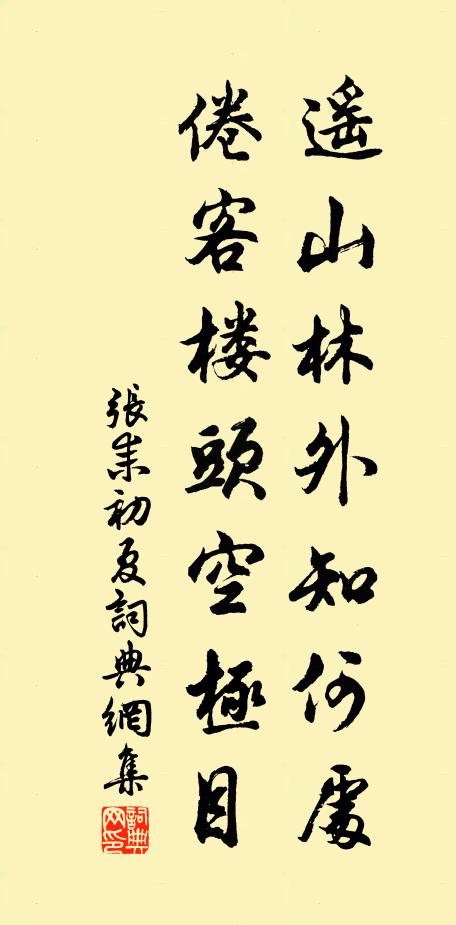 遥山林外知何處
倦客楼頭空極目
張耒初夏詞典網集
詞典网印